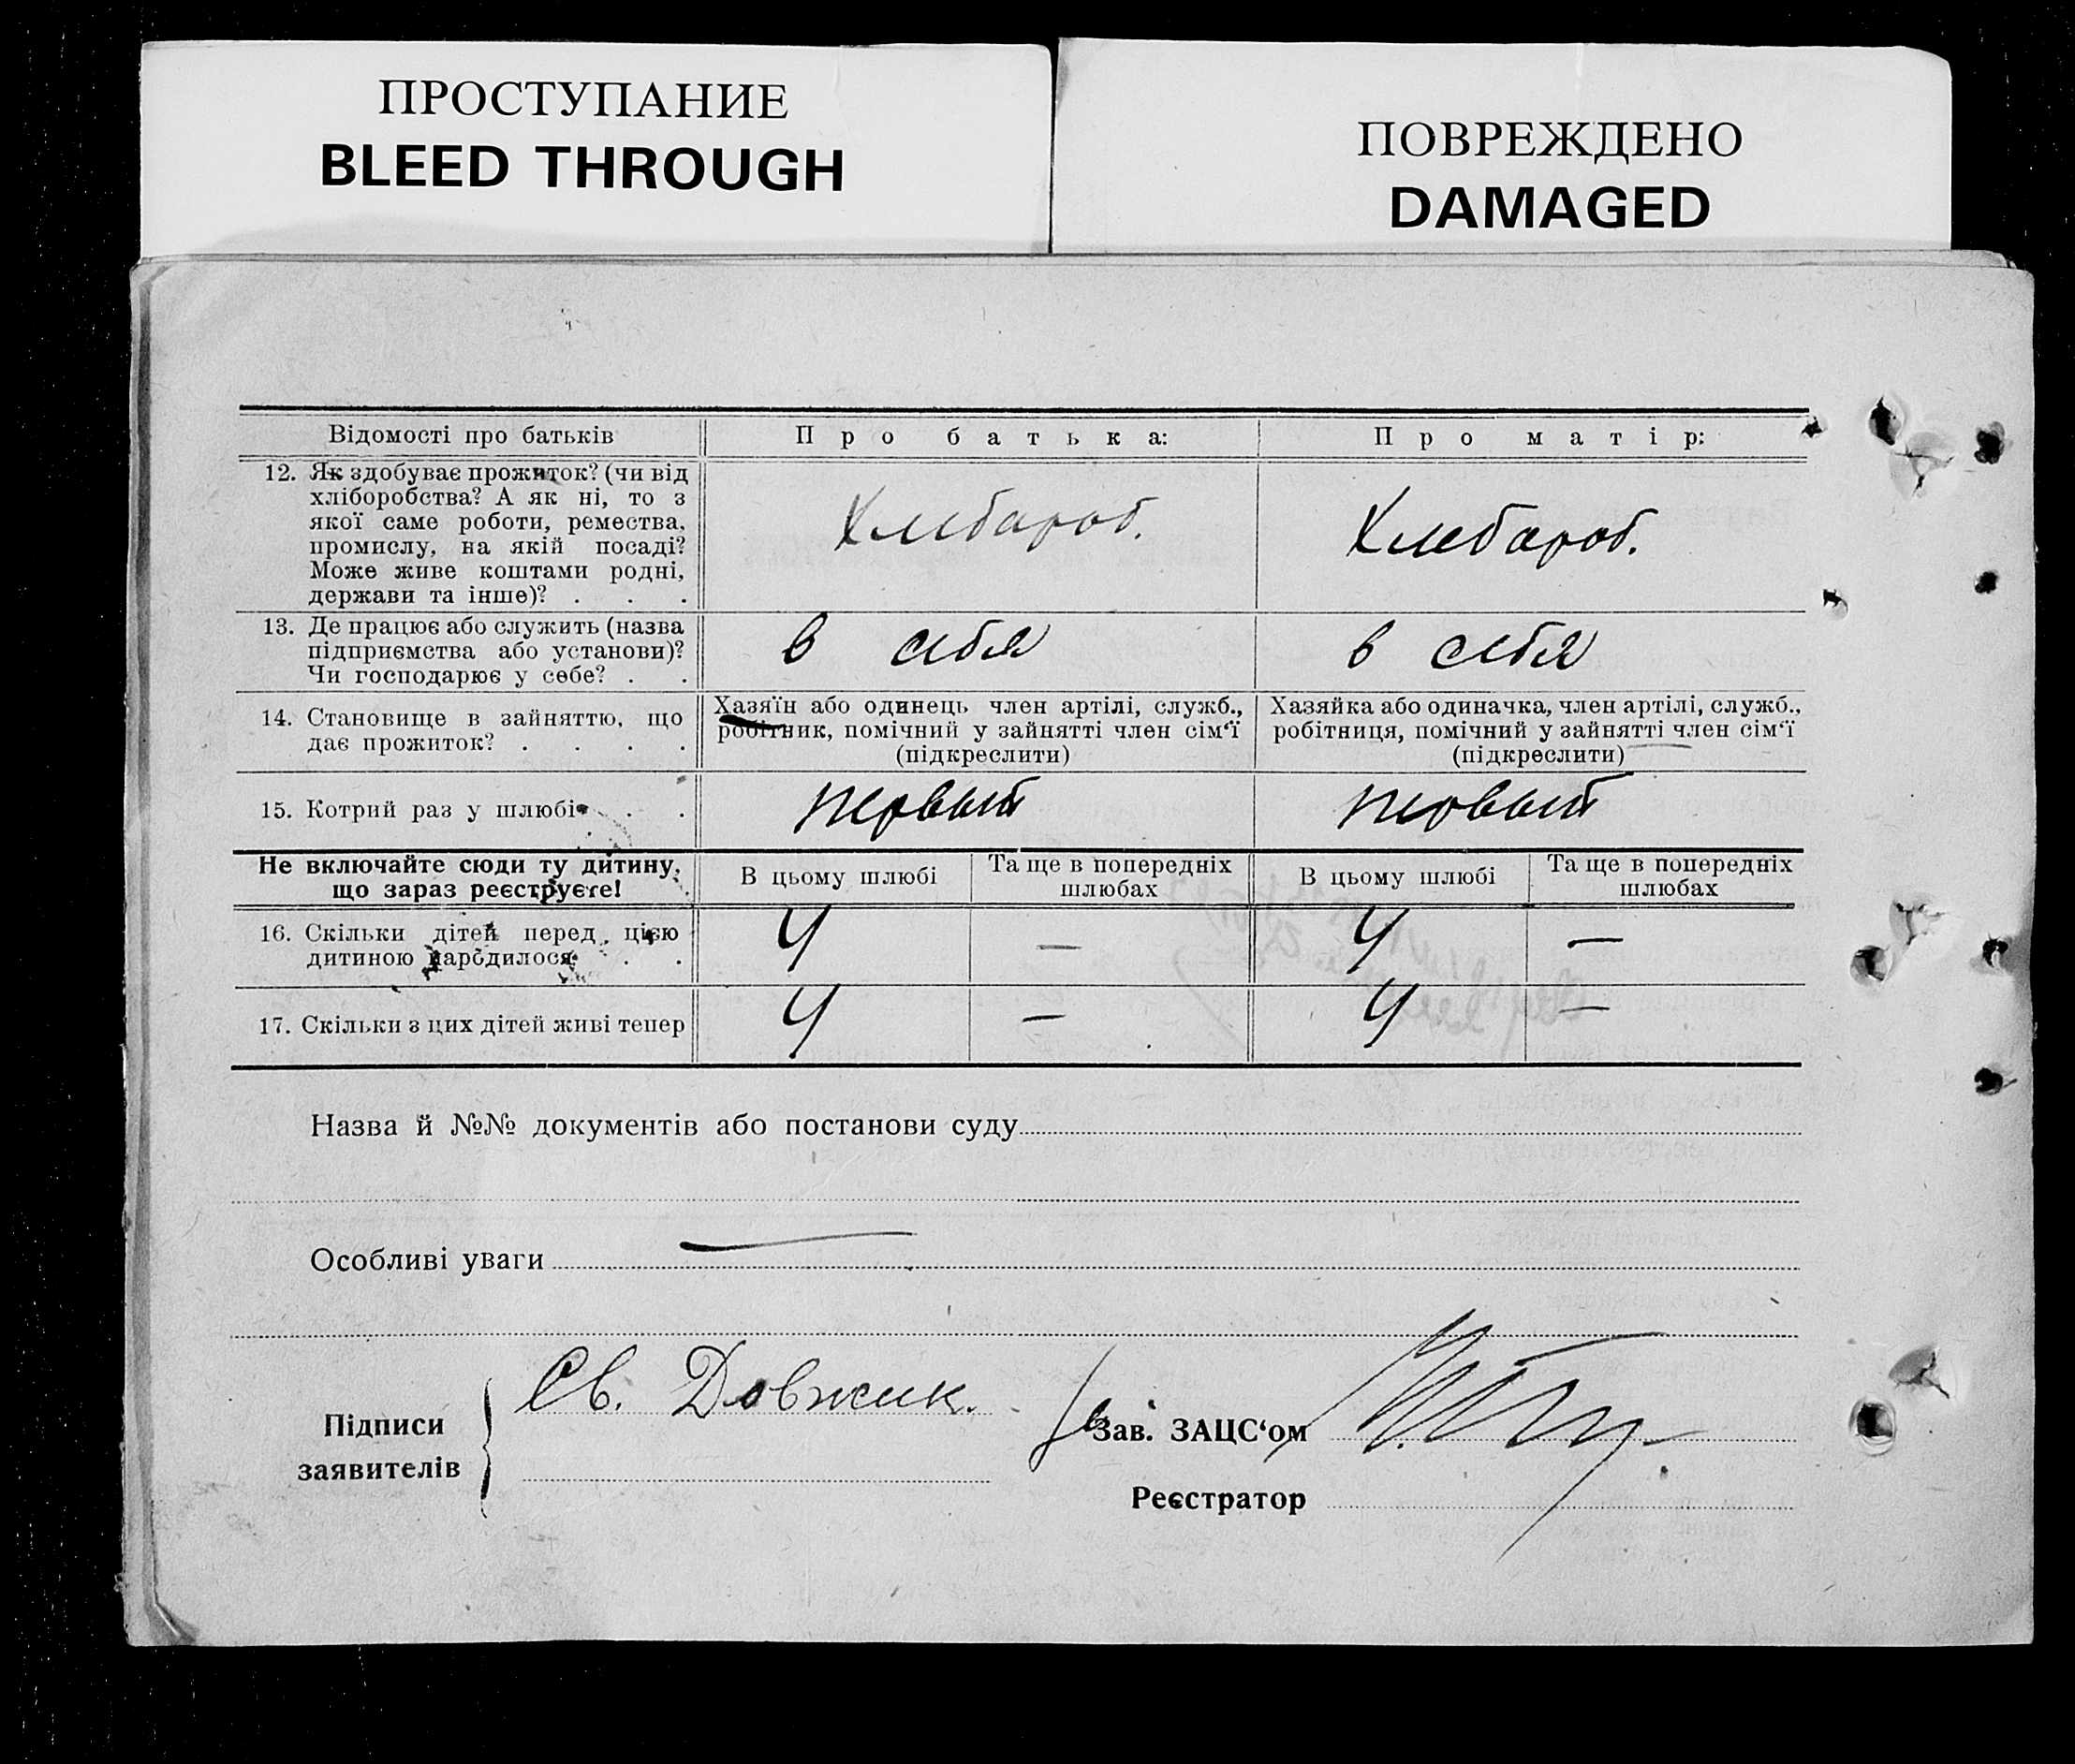 ПРОСТУПАНИЕ
BLEED THROUGH
ПОВРЕЖДЕНО
DAMAGED
Відомості про батьків Про батька: Про матір:
12. Як здобуває прожиток? (чи від
хліборобства? А як ні, то з
якої саме роботи, ремества,
промислу, на якій посаді?
Може живе коштами родні,
держави та інше)? . . .
Хлебароб. Хлебароб.
13. Де працює або служить (назва
підприємства або установи)?
Чи господарює у себе? . .
в себя в себя
14. Становище в зайняттю, що
дає прожиток? . . . .
Хазяїн або одинець член артілі, служб.,
робітник, помічний у зайнятті член сім‘ї
(підкреслити)
Хазяйка або одиначка, член артілі, служб.,
робітниця, помічний у зайнятті член сім‘ї
(підкреслити)
15. Котрий раз у шлюбі . . первый первый
Не включайте сюди ту дитину,
що зараз реєструєте!
В цьому шлюбі
Та ще в попередніх
шлюбах
В цьому шлюбі
Та ще в попередніх
шлюбах
16. Скільки дітей перед цією
дитиною народилося . .
4 — 4 —
17. Скільки з цих дітей живі тепер 4 — 4 —
Назва й №№ документів або постанови суду
Особливі уваги —
Підписи
заявителів
Св. Довжик.
Зав. ЗАЦС‘ом
Реєстратор